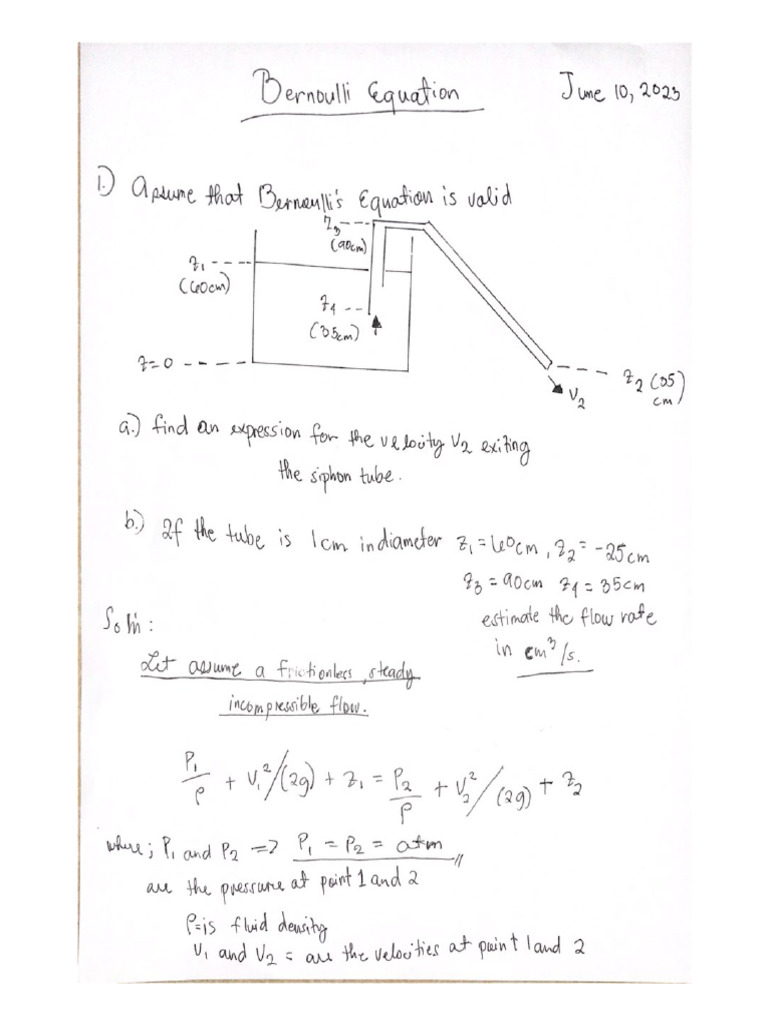 Bernoulli Equation June 10, 2023
1.) Assume that Bernoulli's Equation is valid
z3 ---
(90cm)
z1 ----
(60cm)
z4 --
(35cm)
z=0 ----
--- z2 (35)
cm
V2
a.) find an expression for the velocity V2 exiting
the siphon tube.
b.) If the tube is 1cm in diameter z1 = 60cm, z2 = -25cm
z3 = 90cm z4 = 35cm
estimate the flow rate
in cm³/s.
Sol'n :
Let assume a frictionless, steady
incompressible flow.
P1/ρ + V1²/(2g) + z1 = P2/ρ + V2²/(2g) + z2
where; P1 and P2 => P1 = P2 = atm
are the pressure at point 1 and 2
ρ=is fluid density
V1 and V2 = are the velocities at point 1 and 2